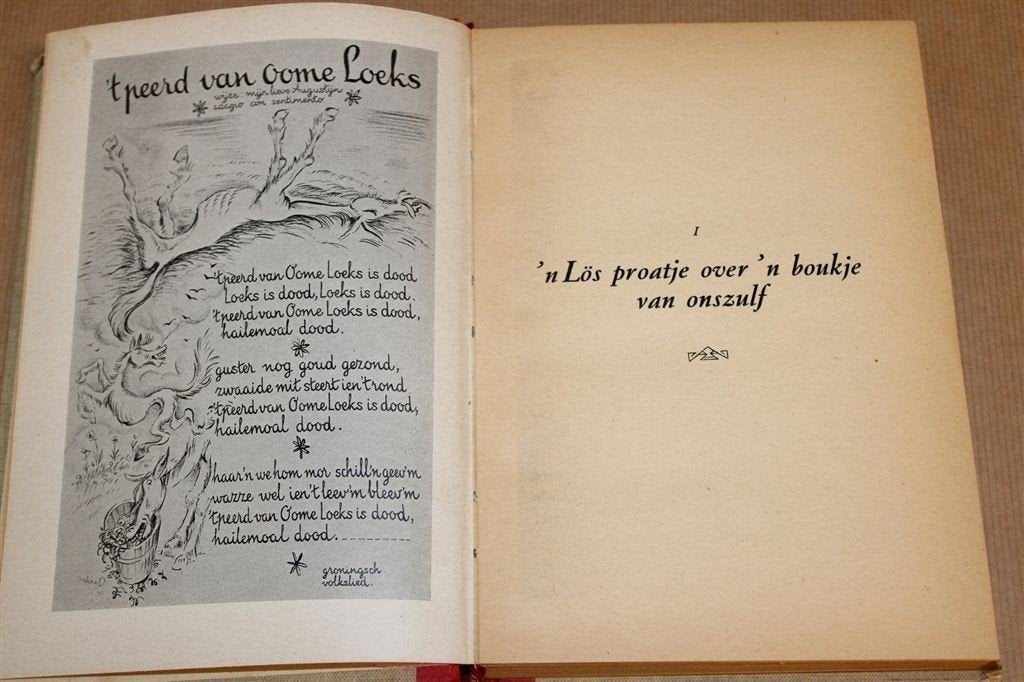 't peerd van Oome Loeks
wijze: mijn lieve Augustijn
adagio con sentimento
't peerd van Oome Loeks is dood
Loeks is dood, Loeks is dood.
't peerd van Oome Loeks is dood,
hailemoal dood.
guster nog goud gezond,
zwaaide mit steert ien 't rond
't peerd van Oome Loeks is dood,
hailemoal dood.
haar'n we hom mor schill'n geev'm
wazze wel ien 't leev'm bleev'm
't peerd van Oome Loeks is dood,
hailemoal dood. ---------
groningsch
volkslied.
I
'n Lös proatje over 'n boukje
van onszulf